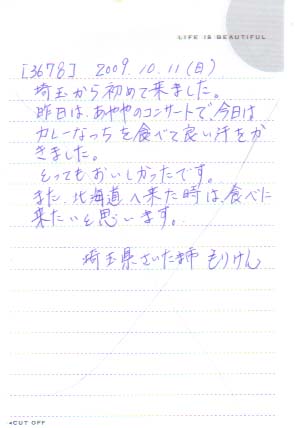 LIFE IS BEAUTIFUL
[3678] 2009.10.11(日)
埼玉から初めて来ました。
昨日は、あややのコンサートで、今日は
カレーなっちを食べて良い汗をか
きました。
とってもおいしかったです。
また、北海道へ来た時は、食べに
来たいと思います。
埼玉県さいたま市 もりけん
◂CUT OFF